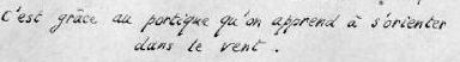 c'est grâce au portique qu'on apprend à s'orienter
dans le vent.